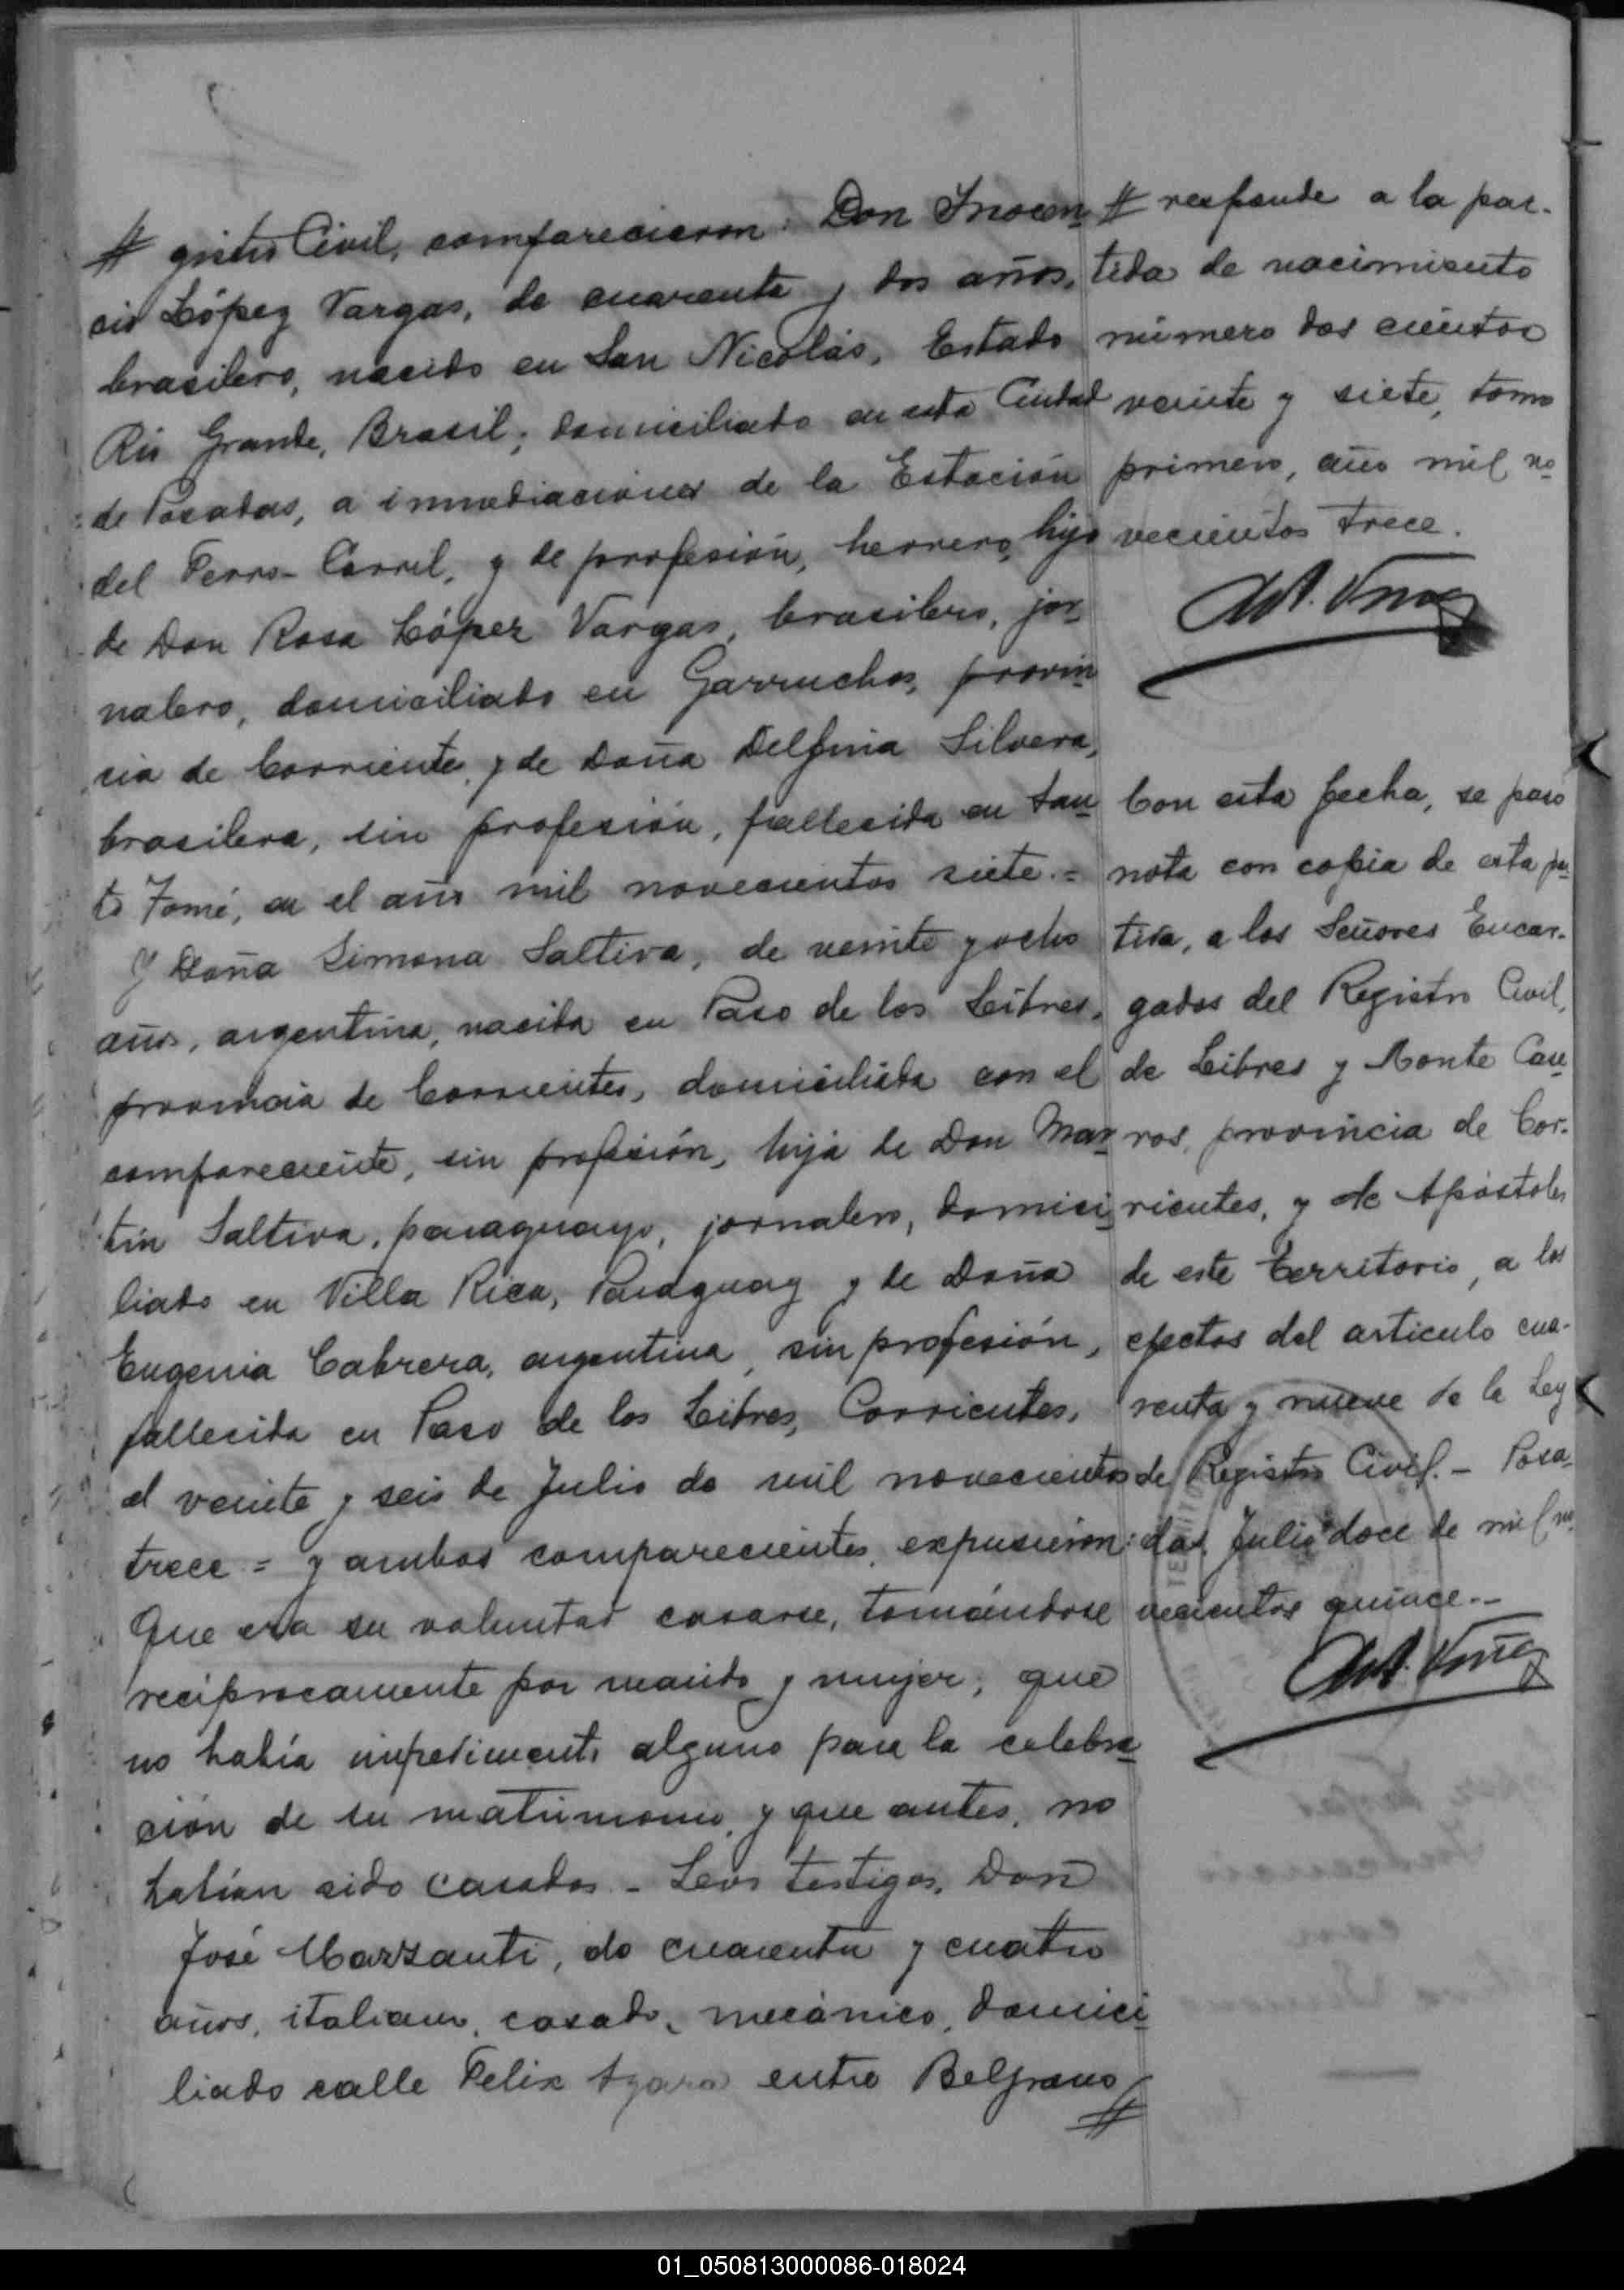 # gistro Civil, comparecieron: Don Inocen-
cio López Vargas, de cuarenta y dos años,
brasilero, nacido en San Nicolás, Estado
Rio Grande, Brasil, domiciliado en esta Ciudad
de Posadas, a inmediaciones de la Estación
del Ferro-Carril, y de profesión, herrero, hijo
de Don Rosa López Vargas, brasilero, jor-
nalero, domiciliado en Garruchos, provin-
cia de Corrientes, y de Doña Delfina Silvera,
brasilera, sin profesión, fallecida en San-
to Tomé, en el año mil novecientos siete.=
Y Doña Simona Saltiva, de veinte y ocho
años, argentina, nacida en Paso de los Libres,
provincia de Corrientes, domiciliada con el
compareciente, sin profesión, hija de Don Mar-
tín Saltiva, paraguayo, jornalero, domici-
liado en Villa Rica, Paraguay y de Doña
Eugenia Cabrera, argentina, sin profesión,
fallecida en Paso de los Libres, Corrientes,
el veinte y seis de Julio de mil novecientos
trece = y ambos comparecientes, expusieron:
Que era su voluntad casarse, tomándose
recíprocamente por marido y mujer; que
no había impedimento alguno para la celebra-
ción de su matrimonio, y que antes, no
habían sido casados.- Leos testigos, Don
José Marzanti, de cuarenta y cuatro
años, italiano, casado, mecánico, domici-
liado calle Felix Azara entre Belgrano
#
# responde a la par-
tida de nacimiento
número dos cientos
veinte y siete, tomo
primero, año mil no-
vecientos trece.
Con esta fecha, se pasó
nota con copia de esta par-
tida, a los Señores Encar-
gados del Registro Civil,
de Libres y Monte Case-
ros, provincia de Cor-
rientes, y de Apóstoles
de este Territorio, a los
efectos del artículo cua-
renta y nueve de la Ley
de Registro Civil.- Posa-
das, Julio doce de mil no-
vecientos quince.-
01_050813000086-018024